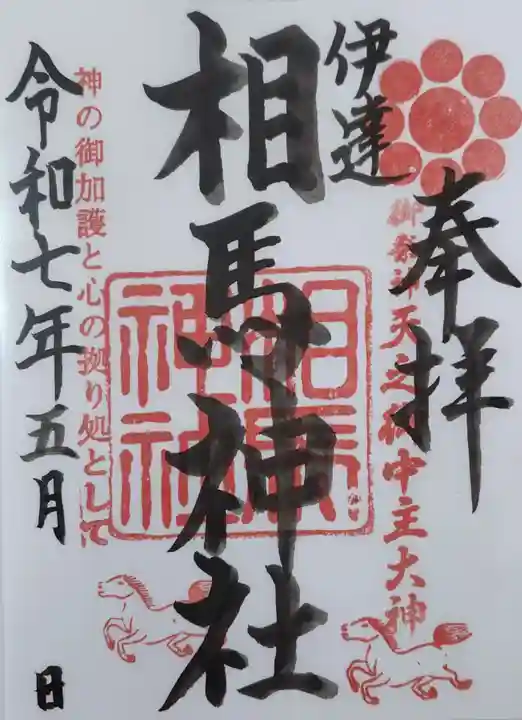 奉拝
御祭神天之御中主大神
伊達
相馬神社
相馬
神社
神の御加護と心の拠り処として
令和七年五月
日